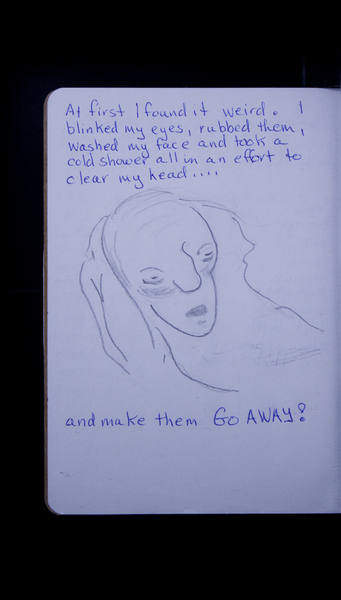 At first I found it weird. I
blinked my eyes, rubbed them,
washed my face and took a
cold shower all in an effort to
clear my head....
and make them GO AWAY!